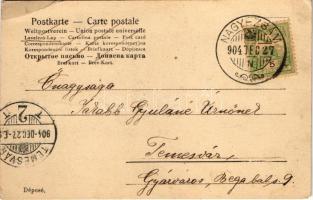 Postkarte - Carte postale
Weltpostverein - Union postale universelle
Levelező-Lap - Cartolina postale - Post card
Correspondenzkarte - Karta korespondencyjna
Korespondenční lístek - Briefkaart - Brefkort
Открытое письмо - Дописна карта
Brjefkort - Brev-Kort.
NAGYEZSÁM
904 DEC 27
N 5
Önagysága
Gyuláné Úrnőnek
Temesvár,
Gyárváros, Bega balsor 9
2
904 DEC 27
TEMESVÁR
Déposé.